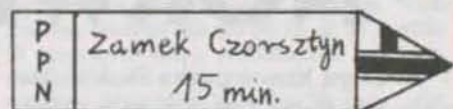 PPN
Zamek Czorsztyn
15 min.